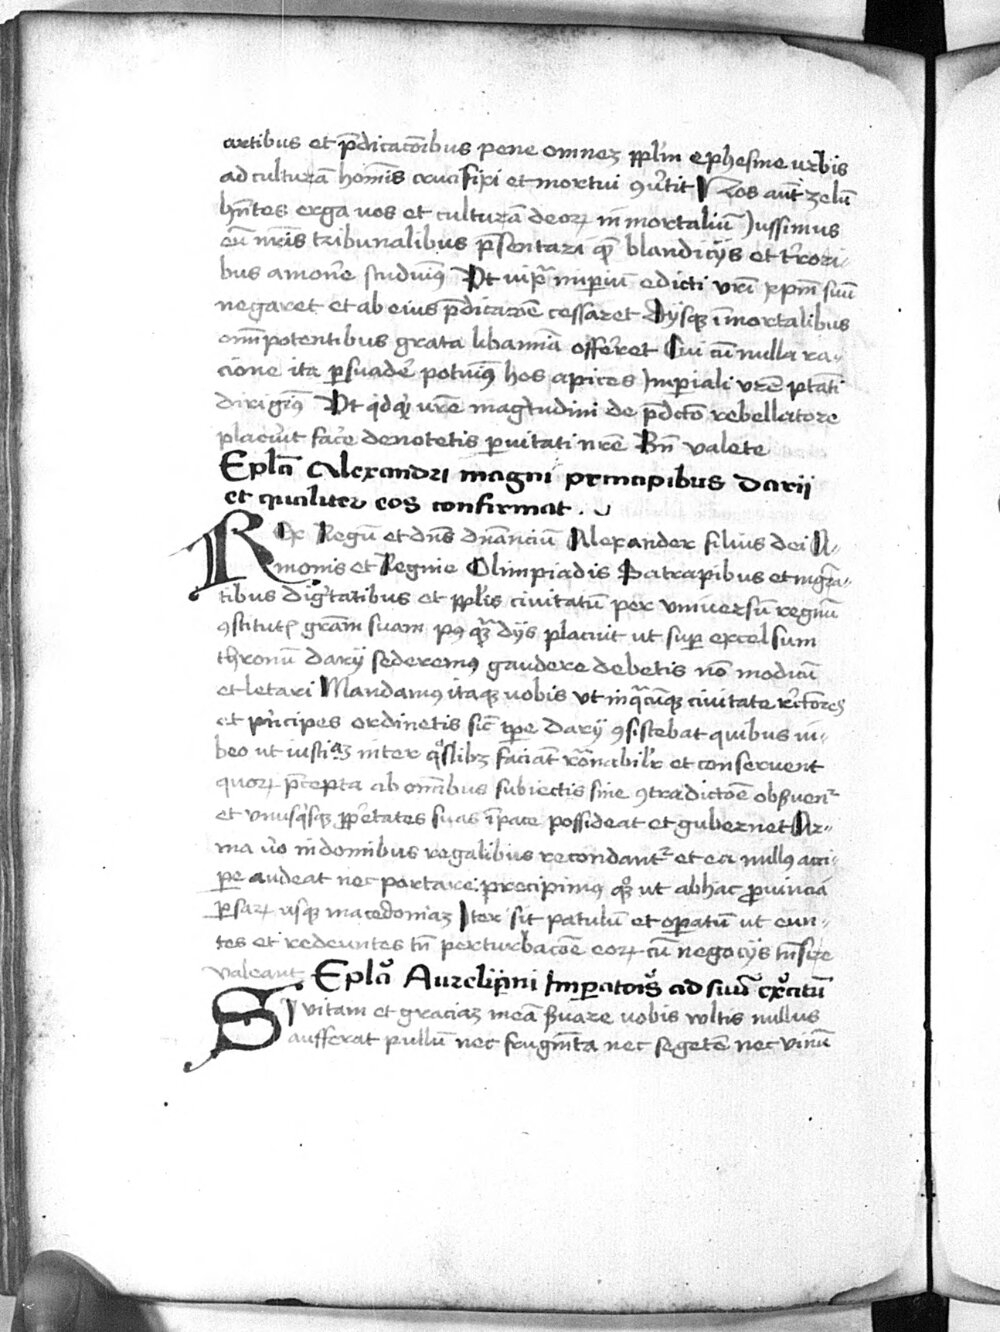 artibus et p̄dicatōibus pene omnez ppl̄m ephesine urbis
ad culturā homīs crucifixi et mortui ꝯu͛tit Nos aut̄ zelū
hn̄tes erga uos et culturā deoꝝ in mortaliū Jussimus
eū nr̄is tribunalibus p̄sentari qᷓ blandicijs et t͛rori-
bus amone͛ studuimꝰ Vt iuxᵃ imperiū edicti vr̄i xpm̄ suū
negaret et ab eius p̄dicac̄oē cessaret Dijsqꝫ īmortalibus
omīpotentibus grata libamīa offerret Cui cū nulla ra-
cione ita ꝑsuade͛ potuimꝰ hos apices Imperiali vr̄e ptātī
dirigimꝰ Vt qⁱdqⁱd vr̄e magᵗudini de p̄dcō rebellatore
placu͛it face͛ denotetis paruitati nr̄e Bn̄ valete
Epl̄a Alexandri magni principibus darij
et qualiter eos confirmat .
Rex Regū et dn̄s dn̄anciū Alexander filius dei A-
monis et Regine Olimpiadis Satrapibus et mgr̄a-
tibus digᵗatibus et ppl̄is ciuitatū per vniuersū regnū
ꝯstitut̄ grām suam pꝰqᷓ dijs placuit ut suꝑ excelsum
thronū darij sederemꝰ gaudere debetis nō modicū
et letari Mandamꝰ itaqꝫ uobis vt in qᵃcūqꝫ ciuitate rc̄tores
et pⁱncipes ordinetis sic̄ tꝑe darij ꝯsistebat quibus iu-
beo ut iusticiaꝫ inter qᵒslibꝫ faciāt rōnabil͛r et conseruent
quoꝝ p̄cepta ab omībus subiectis sine ꝯtradictōe obseruent᷑
et vnusqⁱsqꝫ ꝓp̄etates suas ī pace possideat et gubernet Ar-
ma u͛o in domibus regalibus recondant᷑ et ea nullꝰ acci-
ꝑe audeat nec portare precipimꝰ qᵒꝫ ut ab hac ꝓuincia
ꝑsaꝝ usqꝫ macedoniaꝫ Iter sit patulū et oꝑatū ut eun-
tes et redeuntes sn̄ perturbacōe eoꝝ cū negocijs trn̄sire
valeant Epl̄a Aureliani Imperatoris ad suū exercitū
Si vitam et graciaꝫ meā seruare uobis vultis nullus
aufferat pullū nec frugmēta nec segetē nec vinū